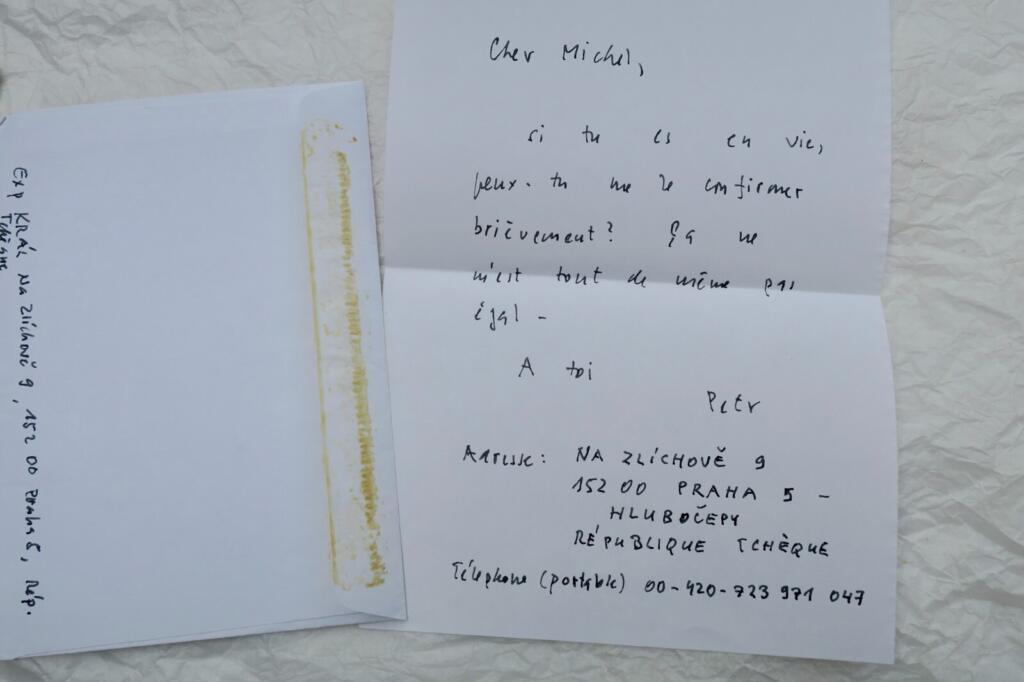 Cher Michel,
si tu es en vie,
peux-tu me le confirmer
brièvement? Ça ne
m'est tout de même pas
égal -
A toi
Petr
Adresse: NA ZLÍCHOVĚ 9
152 00 PRAHA 5 -
HLUBOČEPY
RÉPUBLIQUE TCHÈQUE
Téléphone (portable) 00-420-723 971 047
Exp KRÁL Na Zlíchově 9, 152 00 Praha 5, Rép.